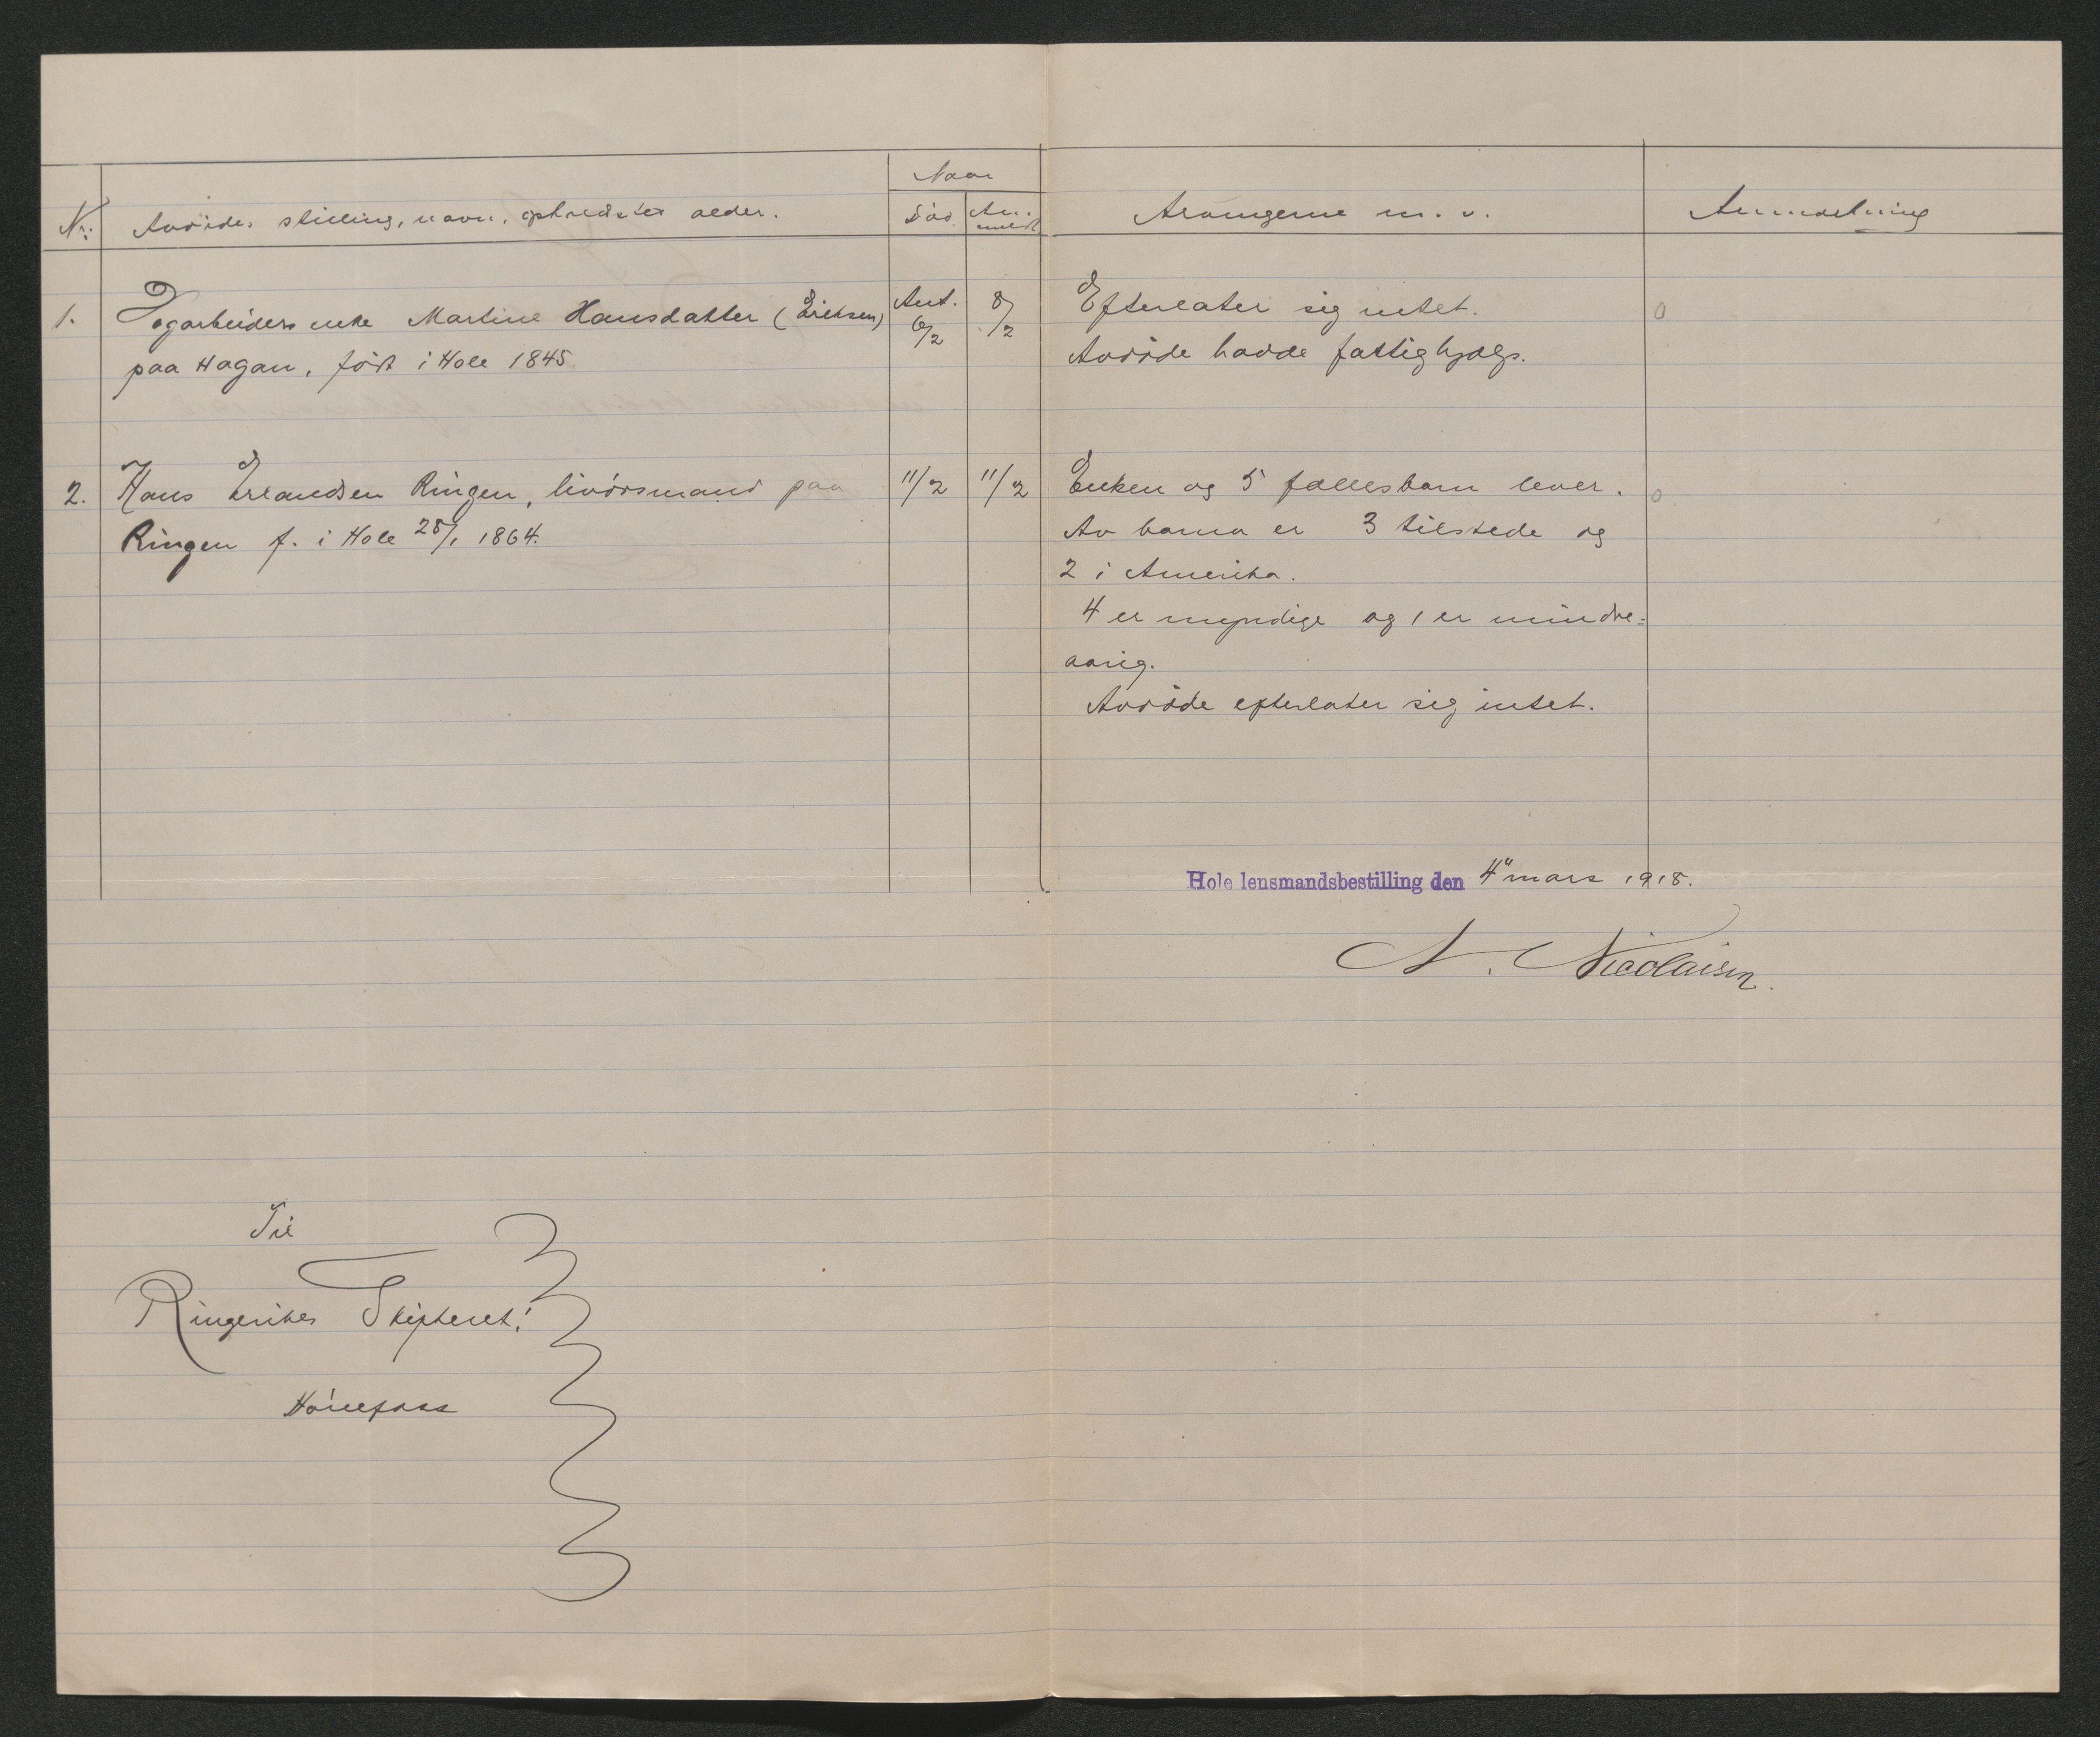 Naar
Nr: Avdødes stilling, navn, opholdsted alder. Død An-meldt Arvingerne m. v. Anmerkning
1. Dagarbeiders enke Martine Hansdatter (Eriksen) Ant. 6/2 8/2 Efterlater sig intet. 0
paa Hagan, født i Hole 1845 Avdøde havde fattighjælp.
2. Hans Erlandsen Ringen, livørsmand paa 11/2 11/2 Enken og 5 fællesbarn lever. 0
Ringen f. i Hole 28/1 1864. Av barna er 3 tilstede og
2 i Amerika.
4 er myndige og 1 er mindre=
aarig.
Avdøde efterlater sig intet.
Hole lensmandsbestilling den 4 mars 1918.
N. Nicolaisen.
Til
Ringerikes Skifteret!
Hønefoss